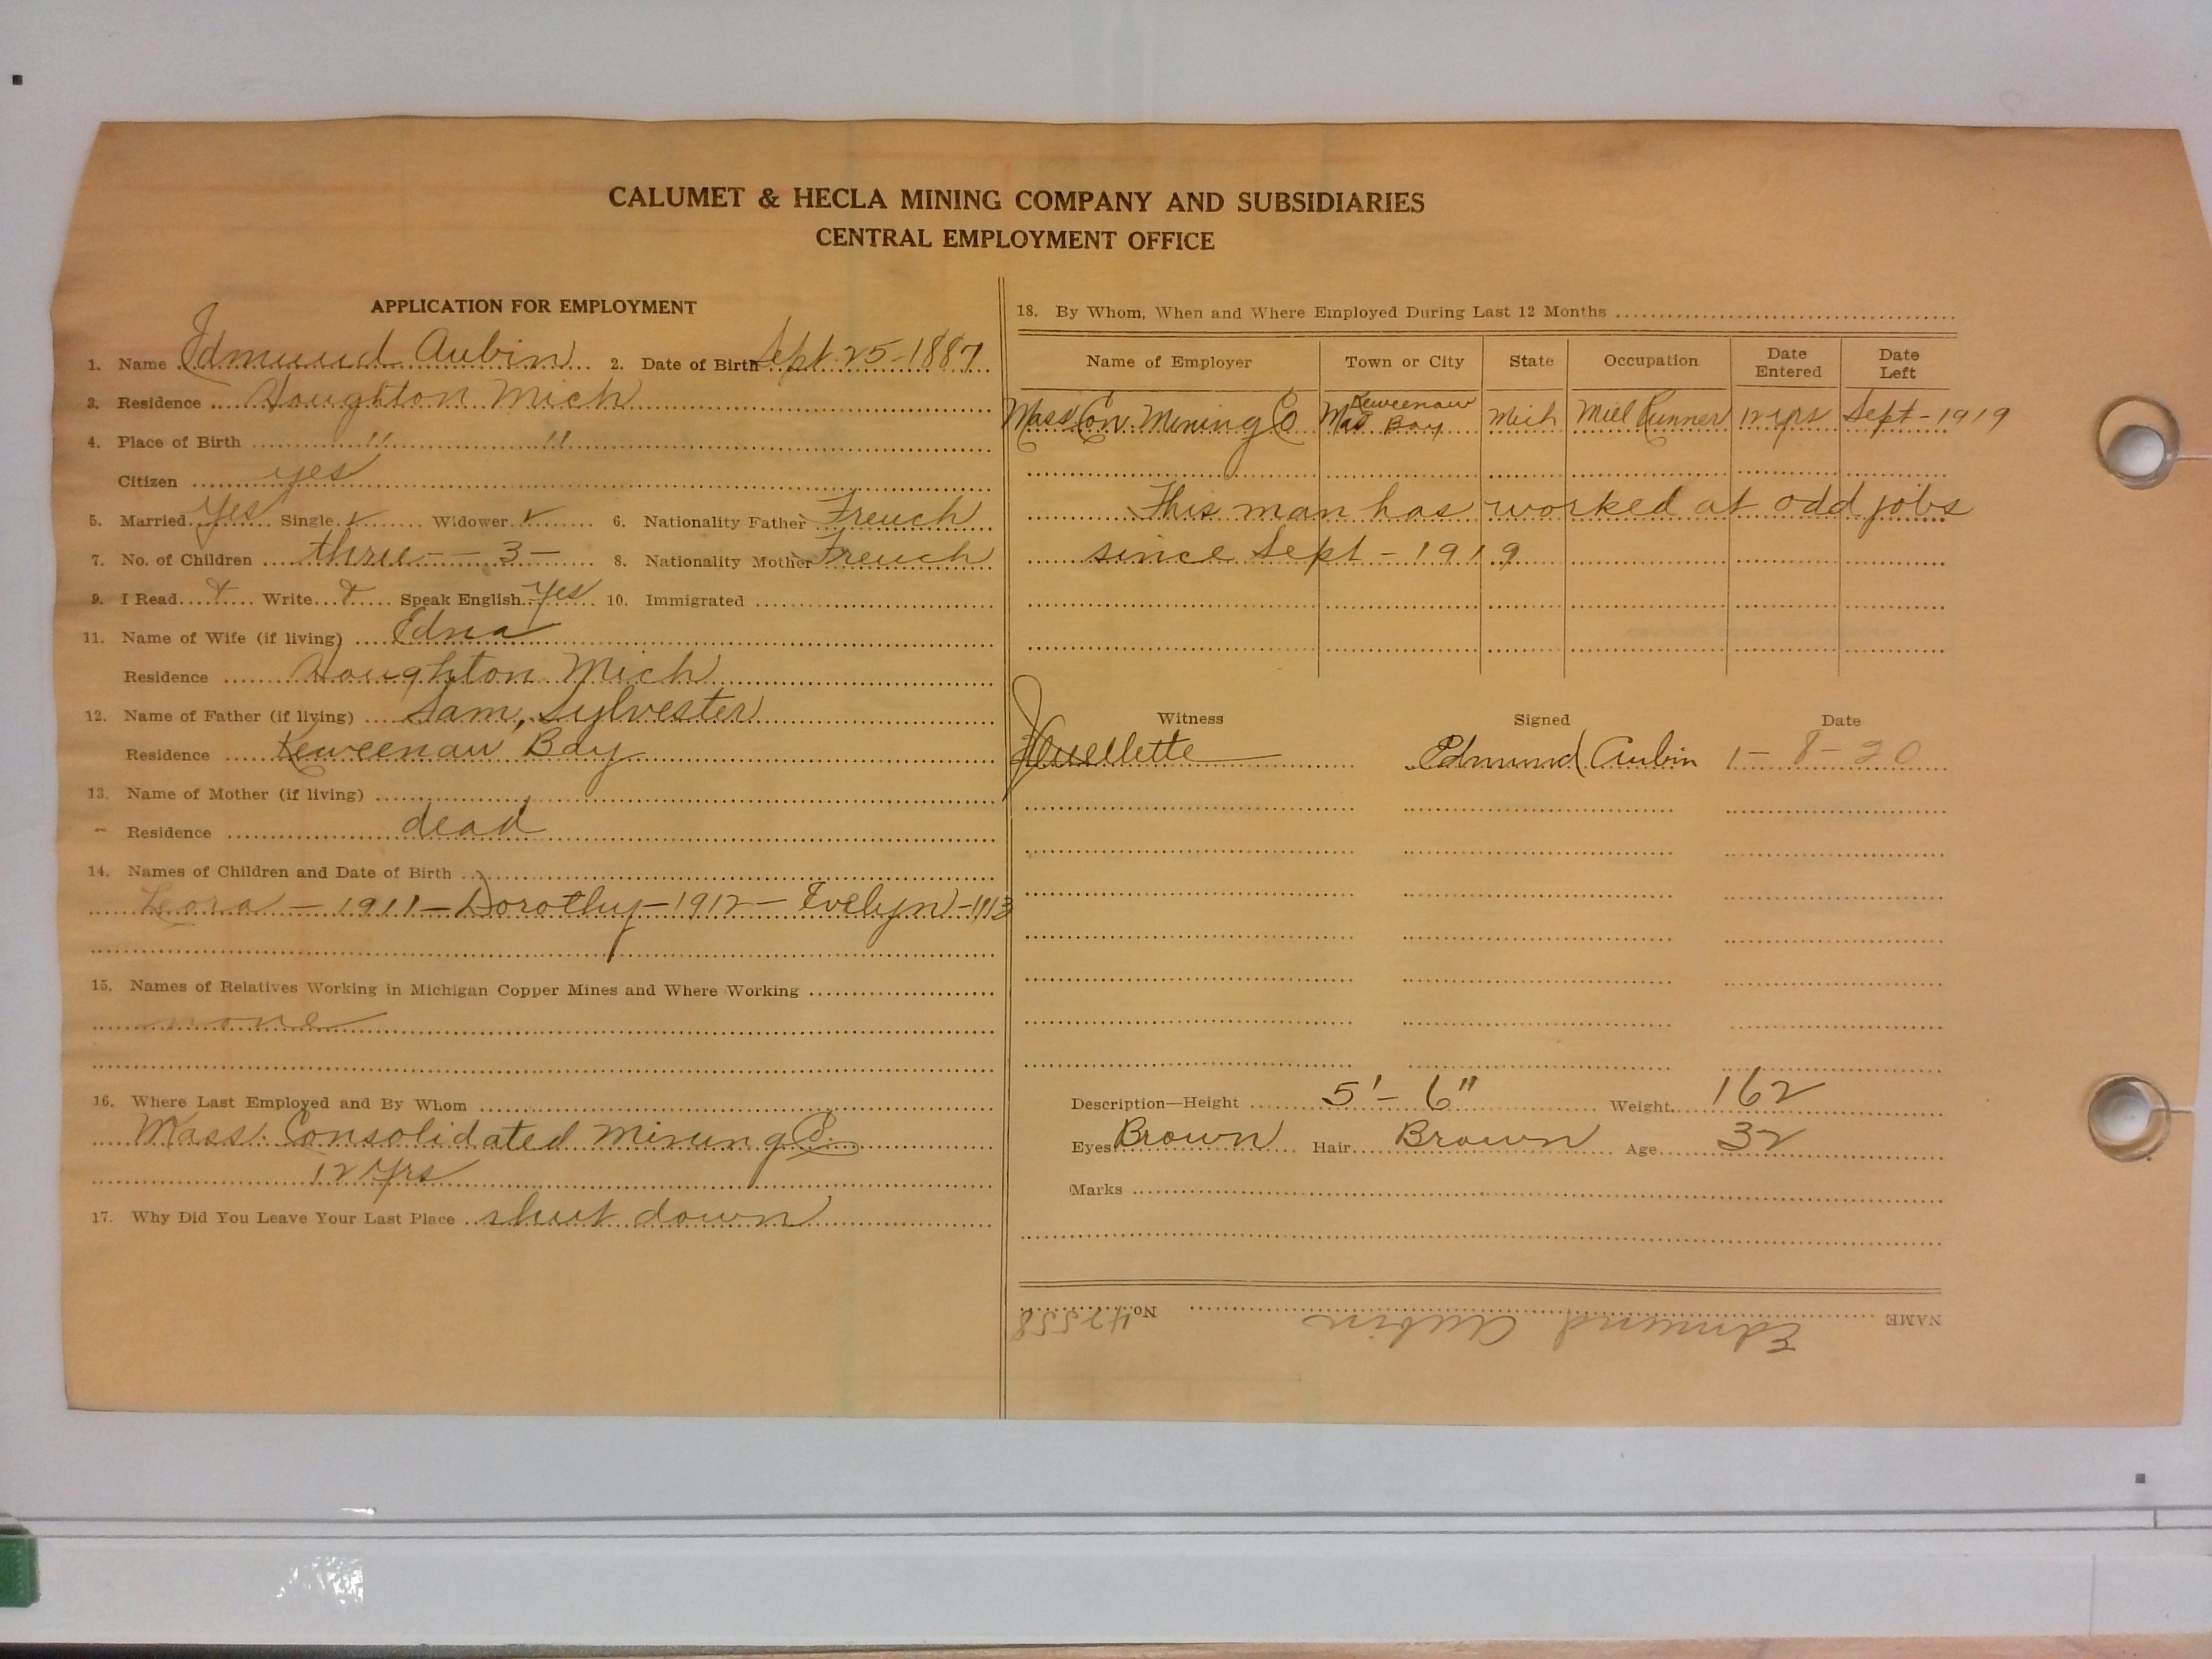 CALUMET & HECLA MINING COMPANY AND SUBSIDIARIES
CENTRAL EMPLOYMENT OFFICE
APPLICATION FOR EMPLOYMENT
1. Name Edmund Aubin 2. Date of Birth Sept 25-1887
3. Residence Houghton Mich
4. Place of Birth " "
Citizen yes
5. Married Yes Single x Widower x 6. Nationality Father French
7. No. of Children three - - 3 - 8. Nationality Mother French
9. I Read Write Speak English Yes 10. Immigrated
11. Name of Wife (if living) Edna
Residence Houghton Mich
12. Name of Father (if living) Sam, Sylvester
Residence Keweenaw Bay
13. Name of Mother (if living)
Residence dead
14. Names of Children and Date of Birth
Leora - 1911 - Dorothy - 1912 - Evelyn - 1913
15. Names of Relatives Working in Michigan Copper Mines and Where Working
none
16. Where Last Employed and By Whom
Mass Consolidated Mining Co.
12 Yrs
17. Why Did You Leave Your Last Place shut down
18. By Whom, When and Where Employed During Last 12 Months
Name of Employer Town or City State Occupation Date Entered Date Left
Mass Con Mining Co Keweenaw Bay Mich Mill Runner 12 yrs Sept - 1919
This man has worked at odd jobs
since Sept - 1919
Witness Signed Date
Ouellette Edmund Aubin 1 - 8 - 20
Description—Height 5' - 6" Weight 162
Eyes Brown Hair Brown Age 32
Marks
NAME Edmund Aubin No. 42558